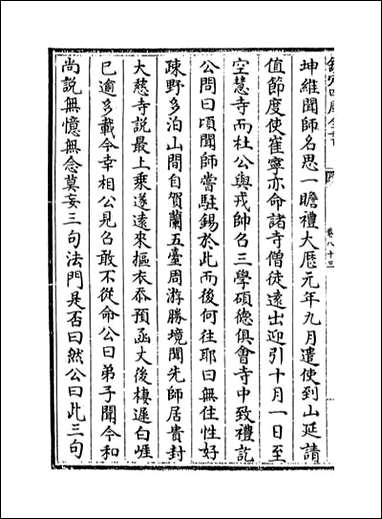 欽定四庫全書
卷八十三
坤維聞師名思一瞻禮大厯元年九月遣使到山延請
值節度使崔寧亦命諸寺僧徒遠出迎引十月一日至
空慧寺而杜公與戎帥召三學碩德俱會寺中致禮訖
公問曰頃聞師嘗駐錫於此而後何往耶曰無住性好
疎野多泊山間自賀蘭五臺周游勝境聞先師居貴封
大慈寺説最上乘遂遠來摳衣忝預函丈後棲遲白崕
已逾多載今幸相公見召敢不從命公曰弟子聞今和
尚説無憶無念莫妄三句法門是否曰然公曰此三句